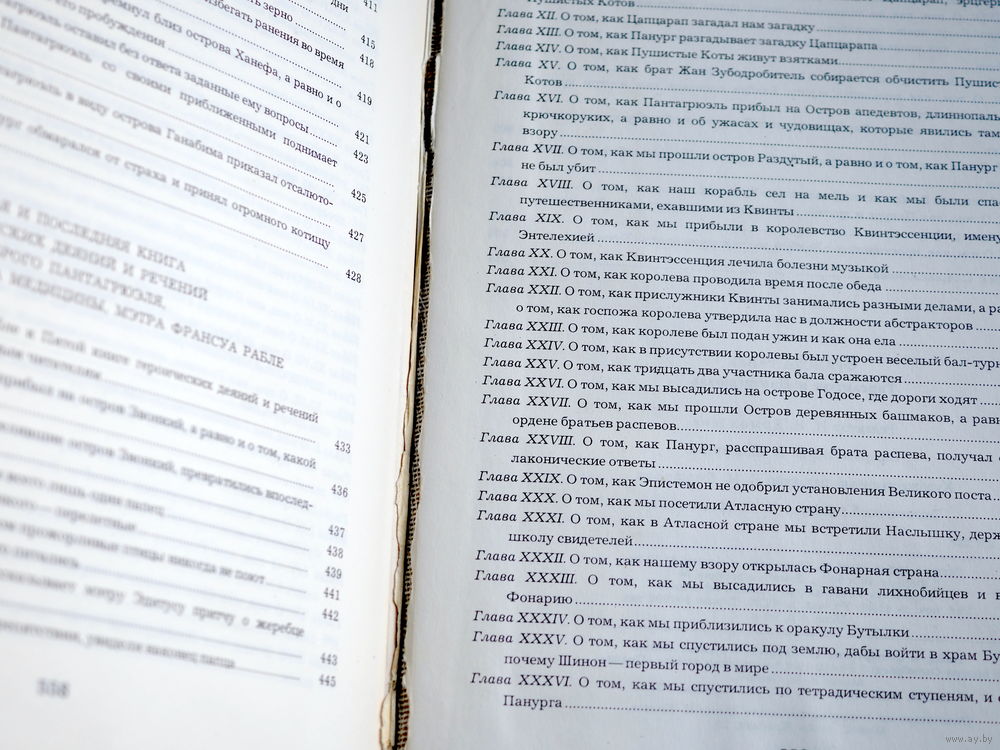 дни
411
зерно
415
избегать ранения во время
418
близ острова Ханефа, а равно и о
пробуждения
419
оставил без ответа заданные ему вопросы
421
со своими приближенными поднимает
423
в виду острова Ганабима приказал отсалюто-
425
обмарался от страха и принял огромного котищу
427
428
И ПОСЛЕДНЯЯ КНИГА
ДЕЯНИЙ И РЕЧЕНИЙ
ПАНТАГРЮЭЛЯ,
МЕДИЦИНЫ, МЭТРА ФРАНСУА РАБЛЕ
к Пятой книге героических деяний и речений
433
прибыл на остров Звонкий, а равно и о том, какой
436
остров Звонкий, превратились впослед-
437
438
прожорливые птицы никогда не поют
439
441
притчу о жеребце
442
443
увидели наконец папца
445
Пушистых Котов
Глава XII. О том, как Цапцарап загадал нам загадку
Глава XIII. О том, как Панург разгадывает загадку Цапцарапа
Глава XIV. О том, как Пушистые Коты живут взятками
Глава XV. О том, как брат Жан Зубодробитель собирается обчистить Пушис
Котов
Глава XVI. О том, как Пантагрюэль прибыл на Остров апедевтов, длиннопаль
крючкоруких, а равно и об ужасах и чудовищах, которые явились там
взору
Глава XVII. О том, как мы прошли остров Раздутый, а равно и о том, как Панург
не был убит
Глава XVIII. О том, как наш корабль сел на мель и как мы были спа
путешественниками, ехавшими из Квинты
Глава XIX. О том, как мы прибыли в королевство Квинтэссенции, имену
Энтелехией
Глава XX. О том, как Квинтэссенция лечила болезни музыкой
Глава XXI. О том, как королева проводила время после обеда
Глава XXII. О том, как прислужники Квинты занимались разными делами, а ра
о том, как госпожа королева утвердила нас в должности абстракторов
Глава XXIII. О том, как королеве был подан ужин и как она ела
Глава XXIV. О том, как в присутствии королевы был устроен веселый бал-турн
Глава XXV. О том, как тридцать два участника бала сражаются
Глава XXVI. О том, как мы высадились на острове Годосе, где дороги ходят
Глава XXVII. О том, как мы прошли Остров деревянных башмаков, а равн
ордене братьев распевов
Глава XXVIII. О том, как Панург, расспрашивая брата распева, получал о
лаконические ответы
Глава XXIX. О том, как Эпистемон не одобрил установления Великого поста
Глава XXX. О том, как мы посетили Атласную страну
Глава XXXI. О том, как в Атласной стране мы встретили Наслышку, держ
школу свидетелей
Глава XXXII. О том, как нашему взору открылась Фонарная страна
Глава XXXIII. О том, как мы высадились в гавани лихнобийцев и в
Фонарию
Глава XXXIV. О том, как мы приблизились к оракулу Бутылки
Глава XXXV. О том, как мы спустились под землю, дабы войти в храм Бу
почему Шинон — первый город в мире
Глава XXXVI. О том, как мы спустились по тетрадическим ступеням, и о
Панурга
www.ay.by